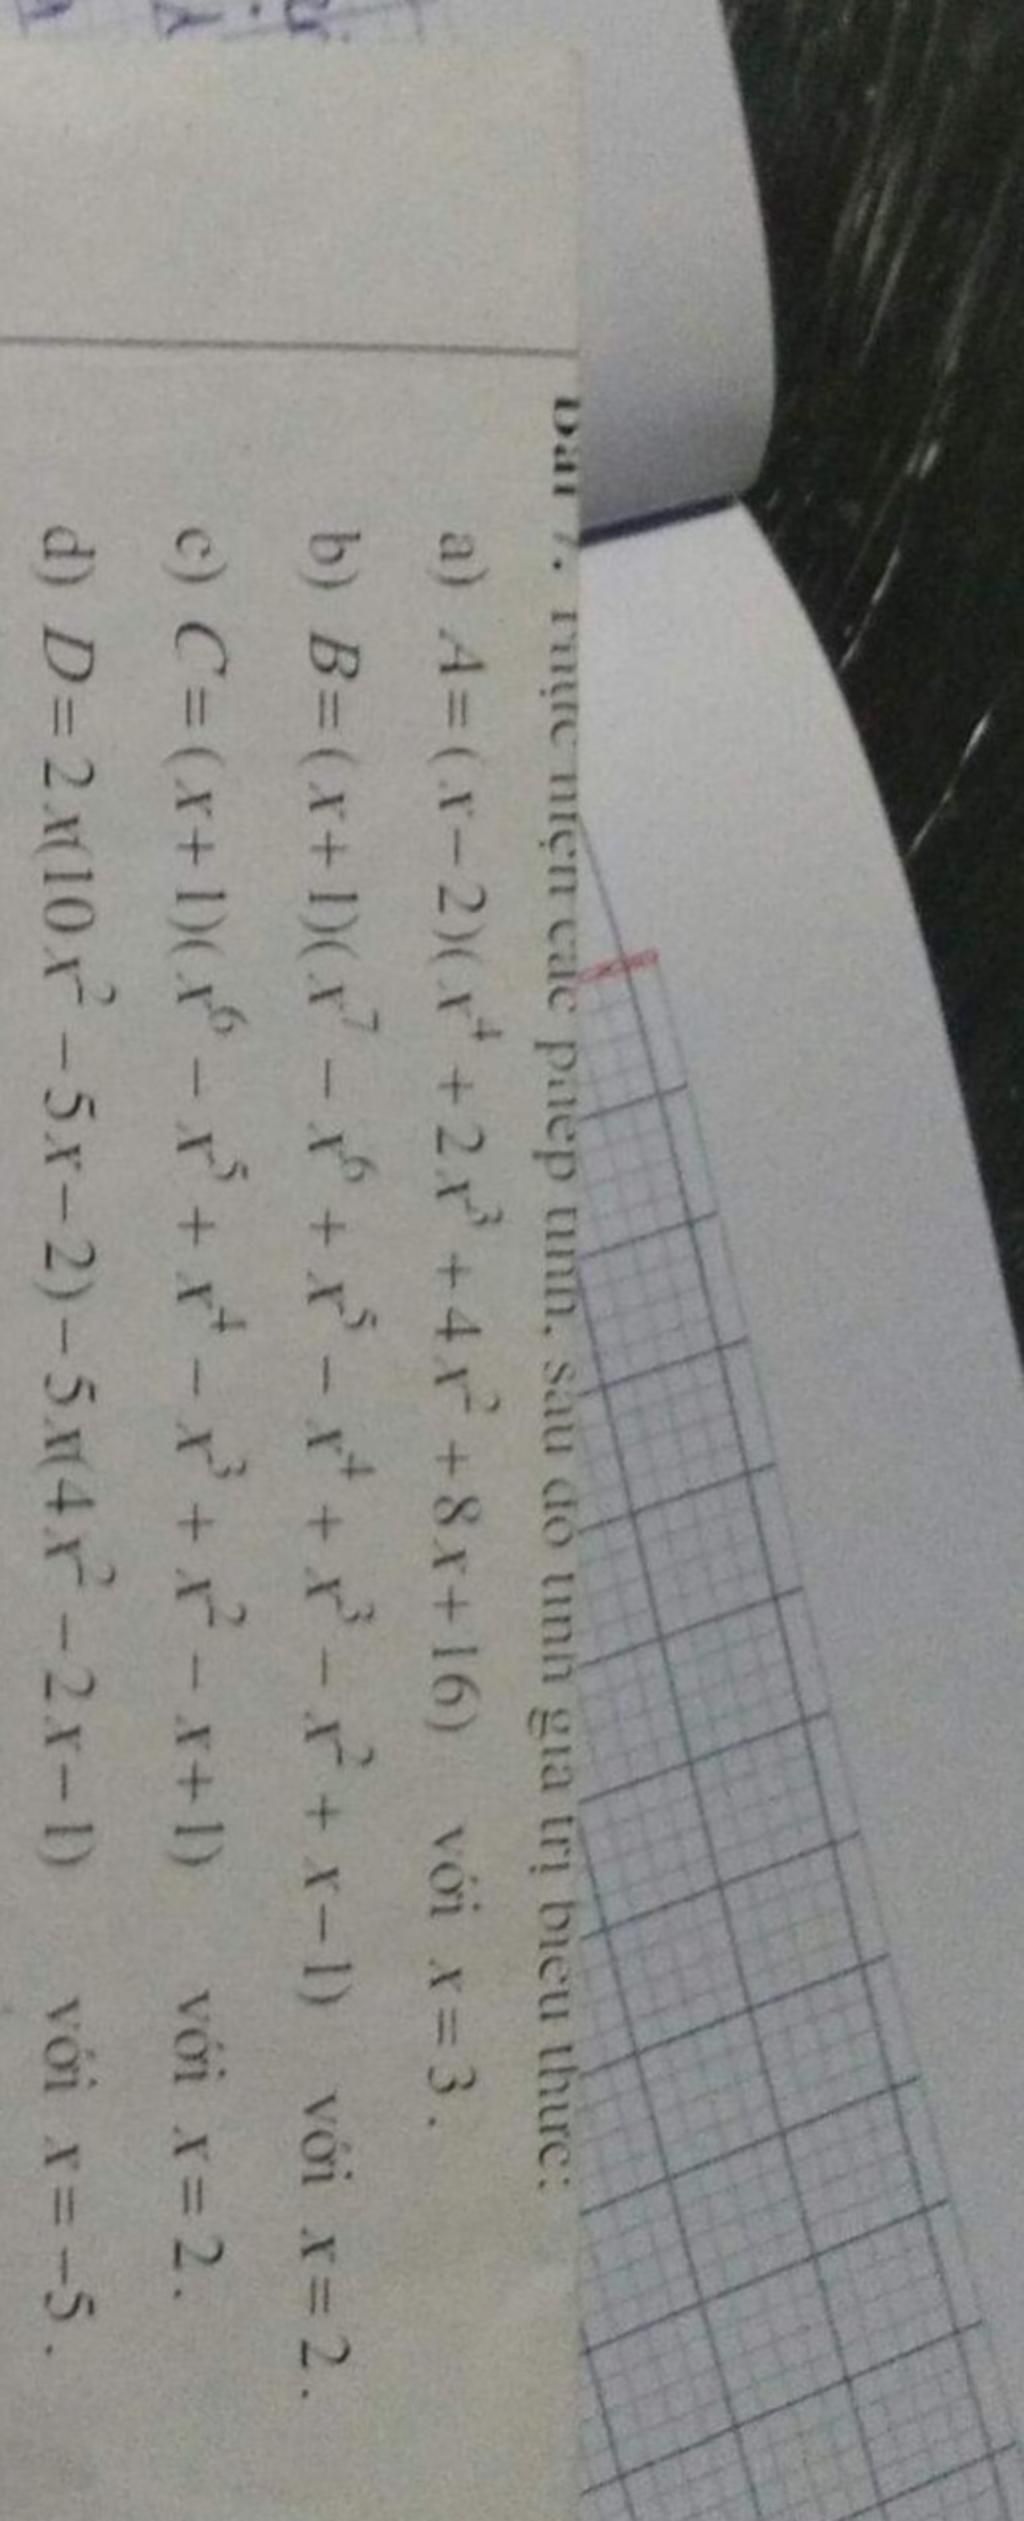 Bài 7. Thực hiện các phép tính, sau đó tính giá trị biểu thức:
a) A=(x−2)(x⁴+2x³+4x²+8x+16) với x=3.
b) B=(x+1)(x⁷−x⁶+x⁵−x⁴+x³−x²+x−1) với x=2.
c) C=(x+1)(x⁶−x⁵+x⁴−x³+x²−x+1) với x=2.
d) D=2x(10x²−5x−2)−5x(4x²−2x−1) với x=−5.